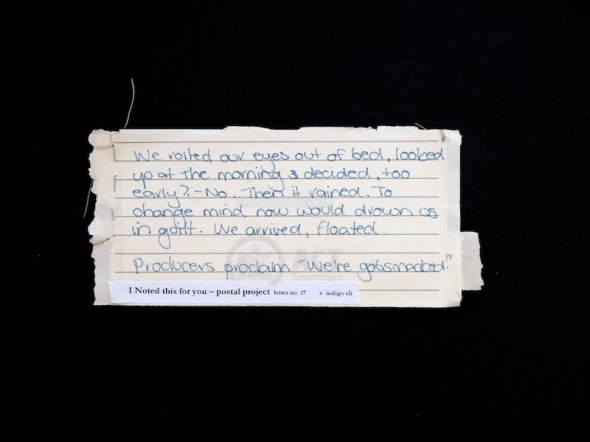 We rolled our eyes out of bed, looked
up at the morning & decided, too
early? - No. Then it rained. To
change mind now would drown us
in guilt. We arrived, floated.
Producers proclaim "We're gobsmacked!"
ACT
Government
I Noted this for you – postal project letter no. 17 x indigo eli